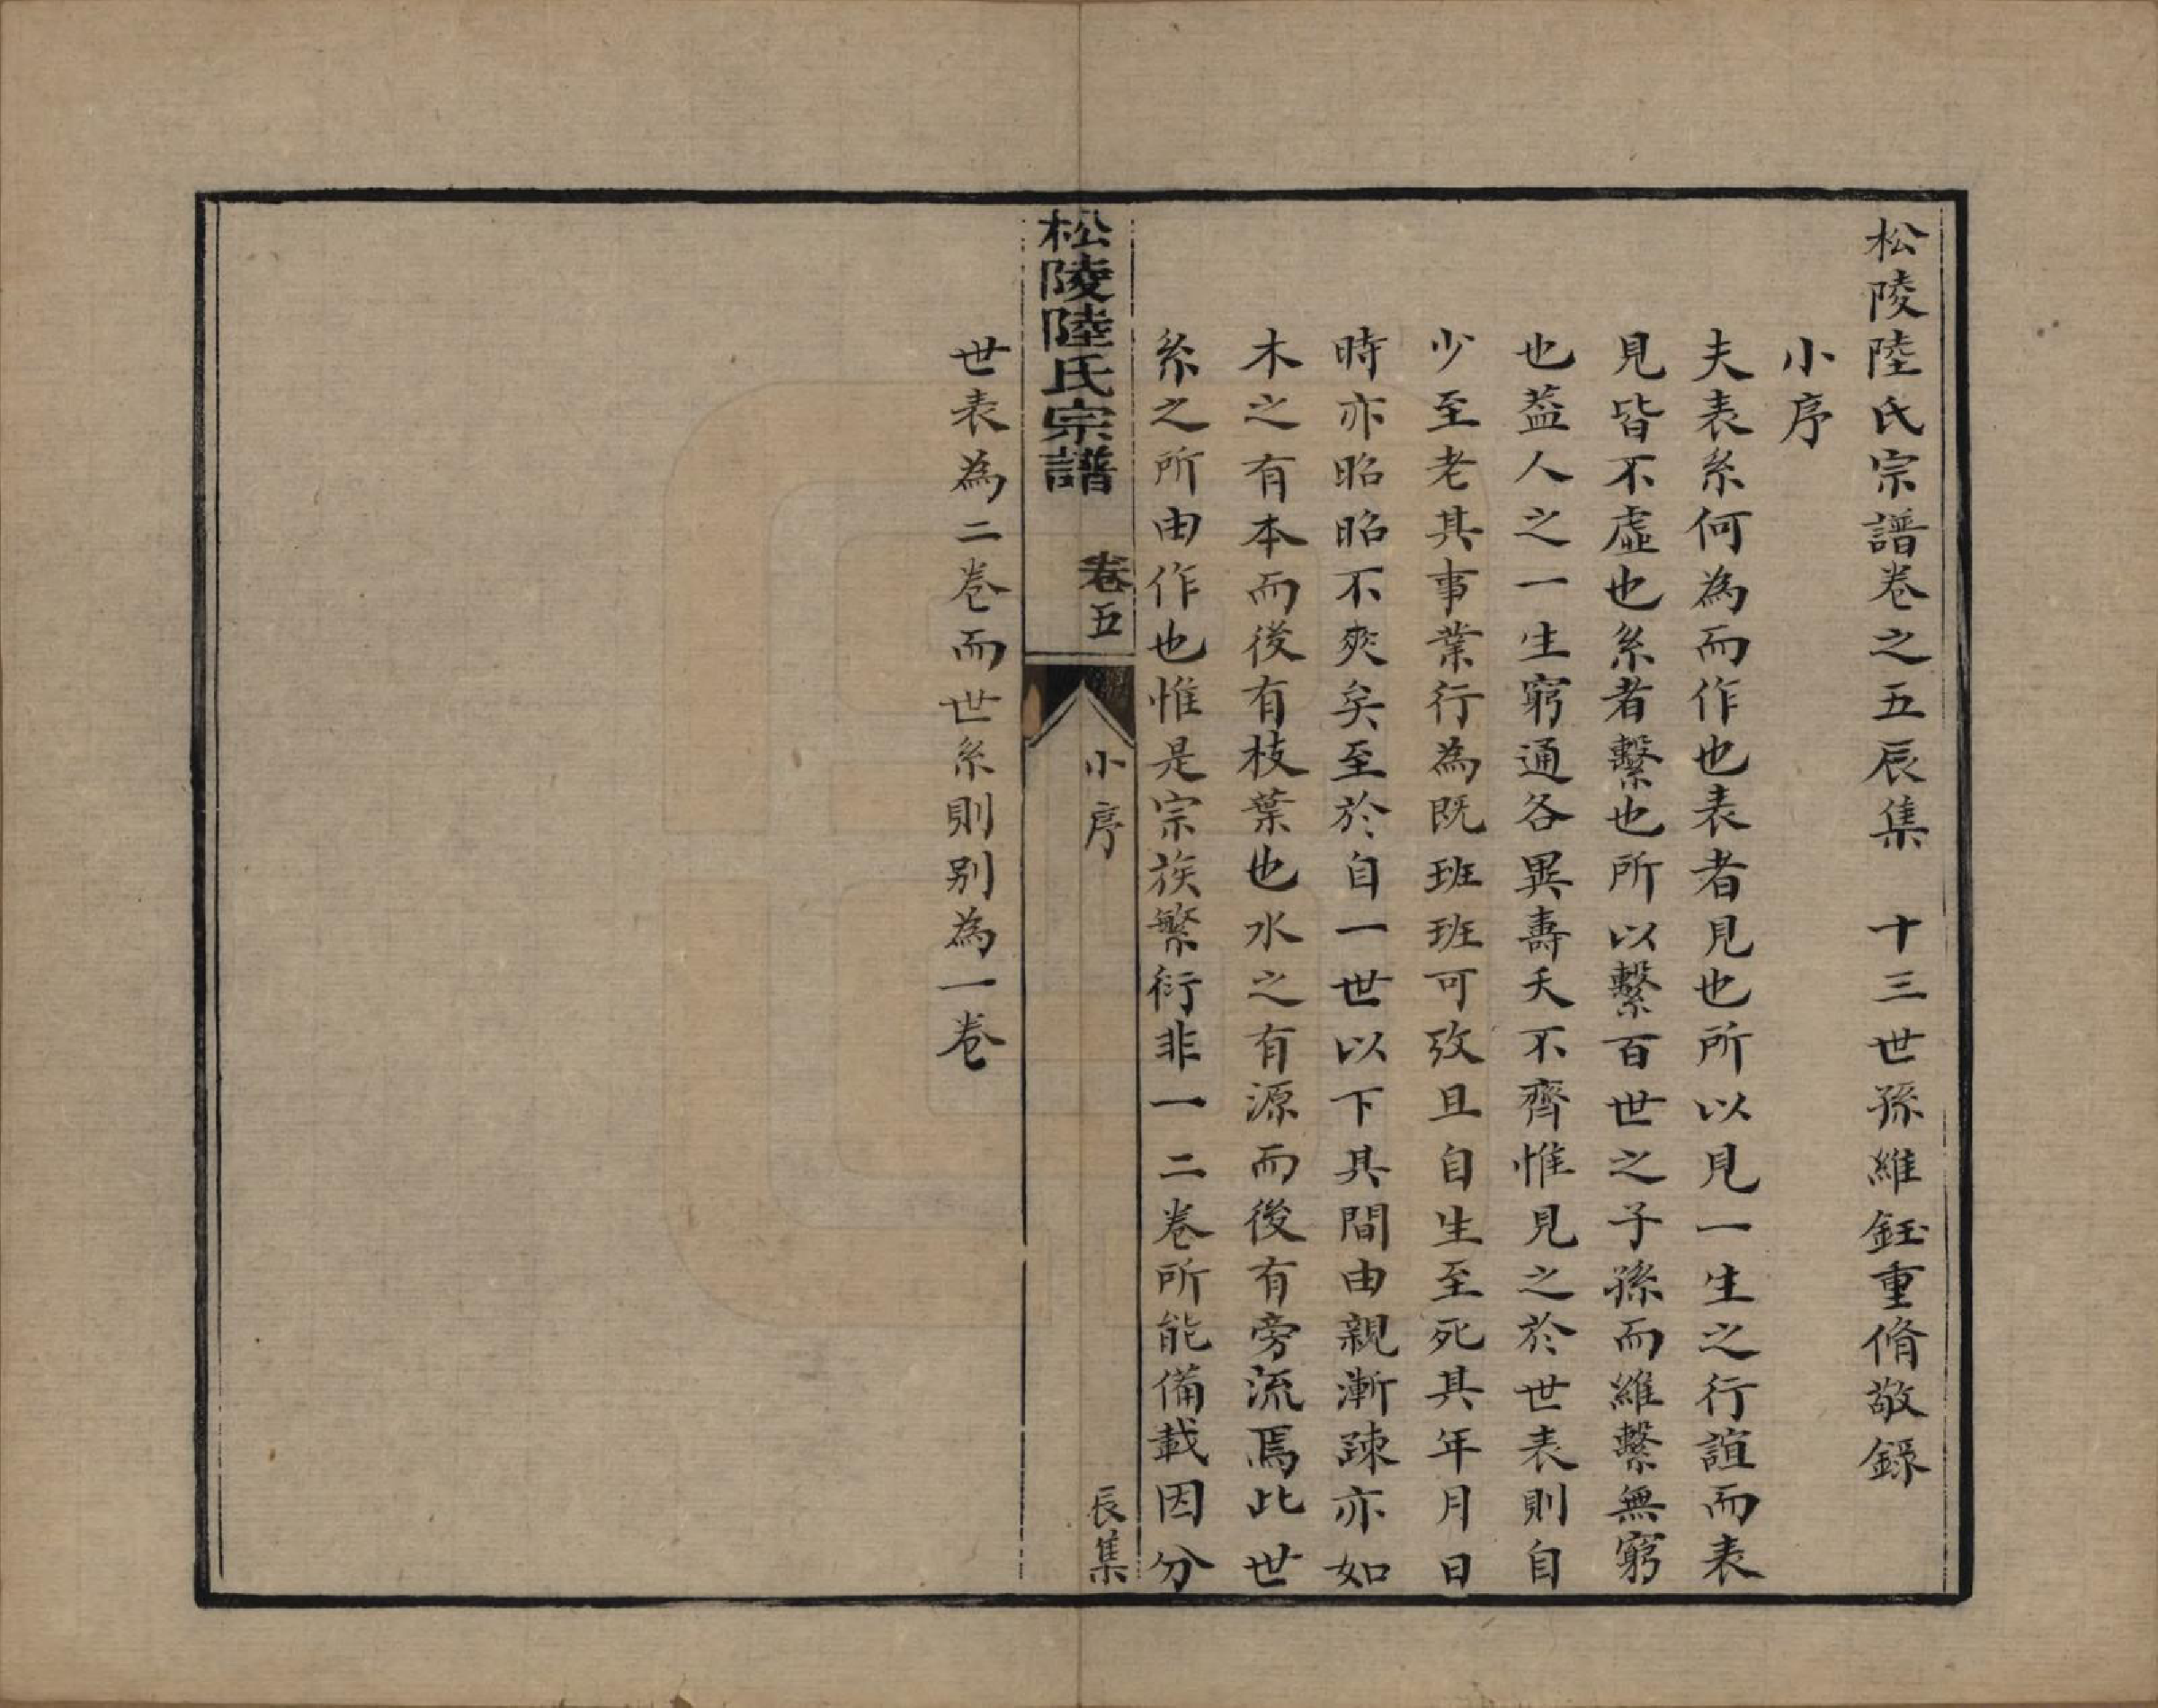 松陵陸氏宗譜卷之五辰集　十三世孫維鈺重脩敬錄
小序
夫表系何為而作也表者見也所以見一生之行誼而表
見皆不虛也系者繫也所以繫百世之子孫而維繫無窮
也葢人之一生窮通各異壽夭不齊惟見之於世表則自
少至老其事業行為既班班可攷且自生至死其年月日
時亦昭昭不爽矣至於自一世以下其間由親漸疎亦如
木之有本而後有枝葉也水之有源而後有旁流焉此世
系之所由作也惟是宗族繁衍非一二卷所能備載因分
松陵陸氏宗譜　卷五　小序　辰集
世表為二卷而世系則别為一卷